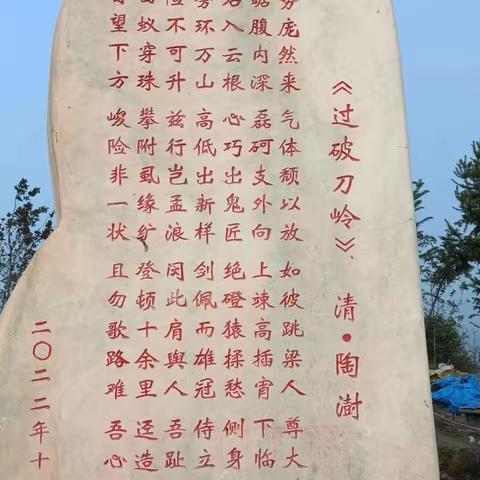 《过破刀岭》 清·陶澍
庞然来 气体颓以放 如彼跳梁人 尊大
踞腹内深 磊砢支外向 上竦高插霄 下临
入云根 心巧出鬼匠 绝磴猿猱愁 侧身
旁环万山 高低出新样 剑佩而雄冠 侍立
险不可升 兹行岂孟浪 闵此肩與人 吾趾
蚁穿珠 攀附虱缘纩 登顿十余里 迳造
望下方 峻险非一状 且勿歌路难 吾心
二〇二二年十